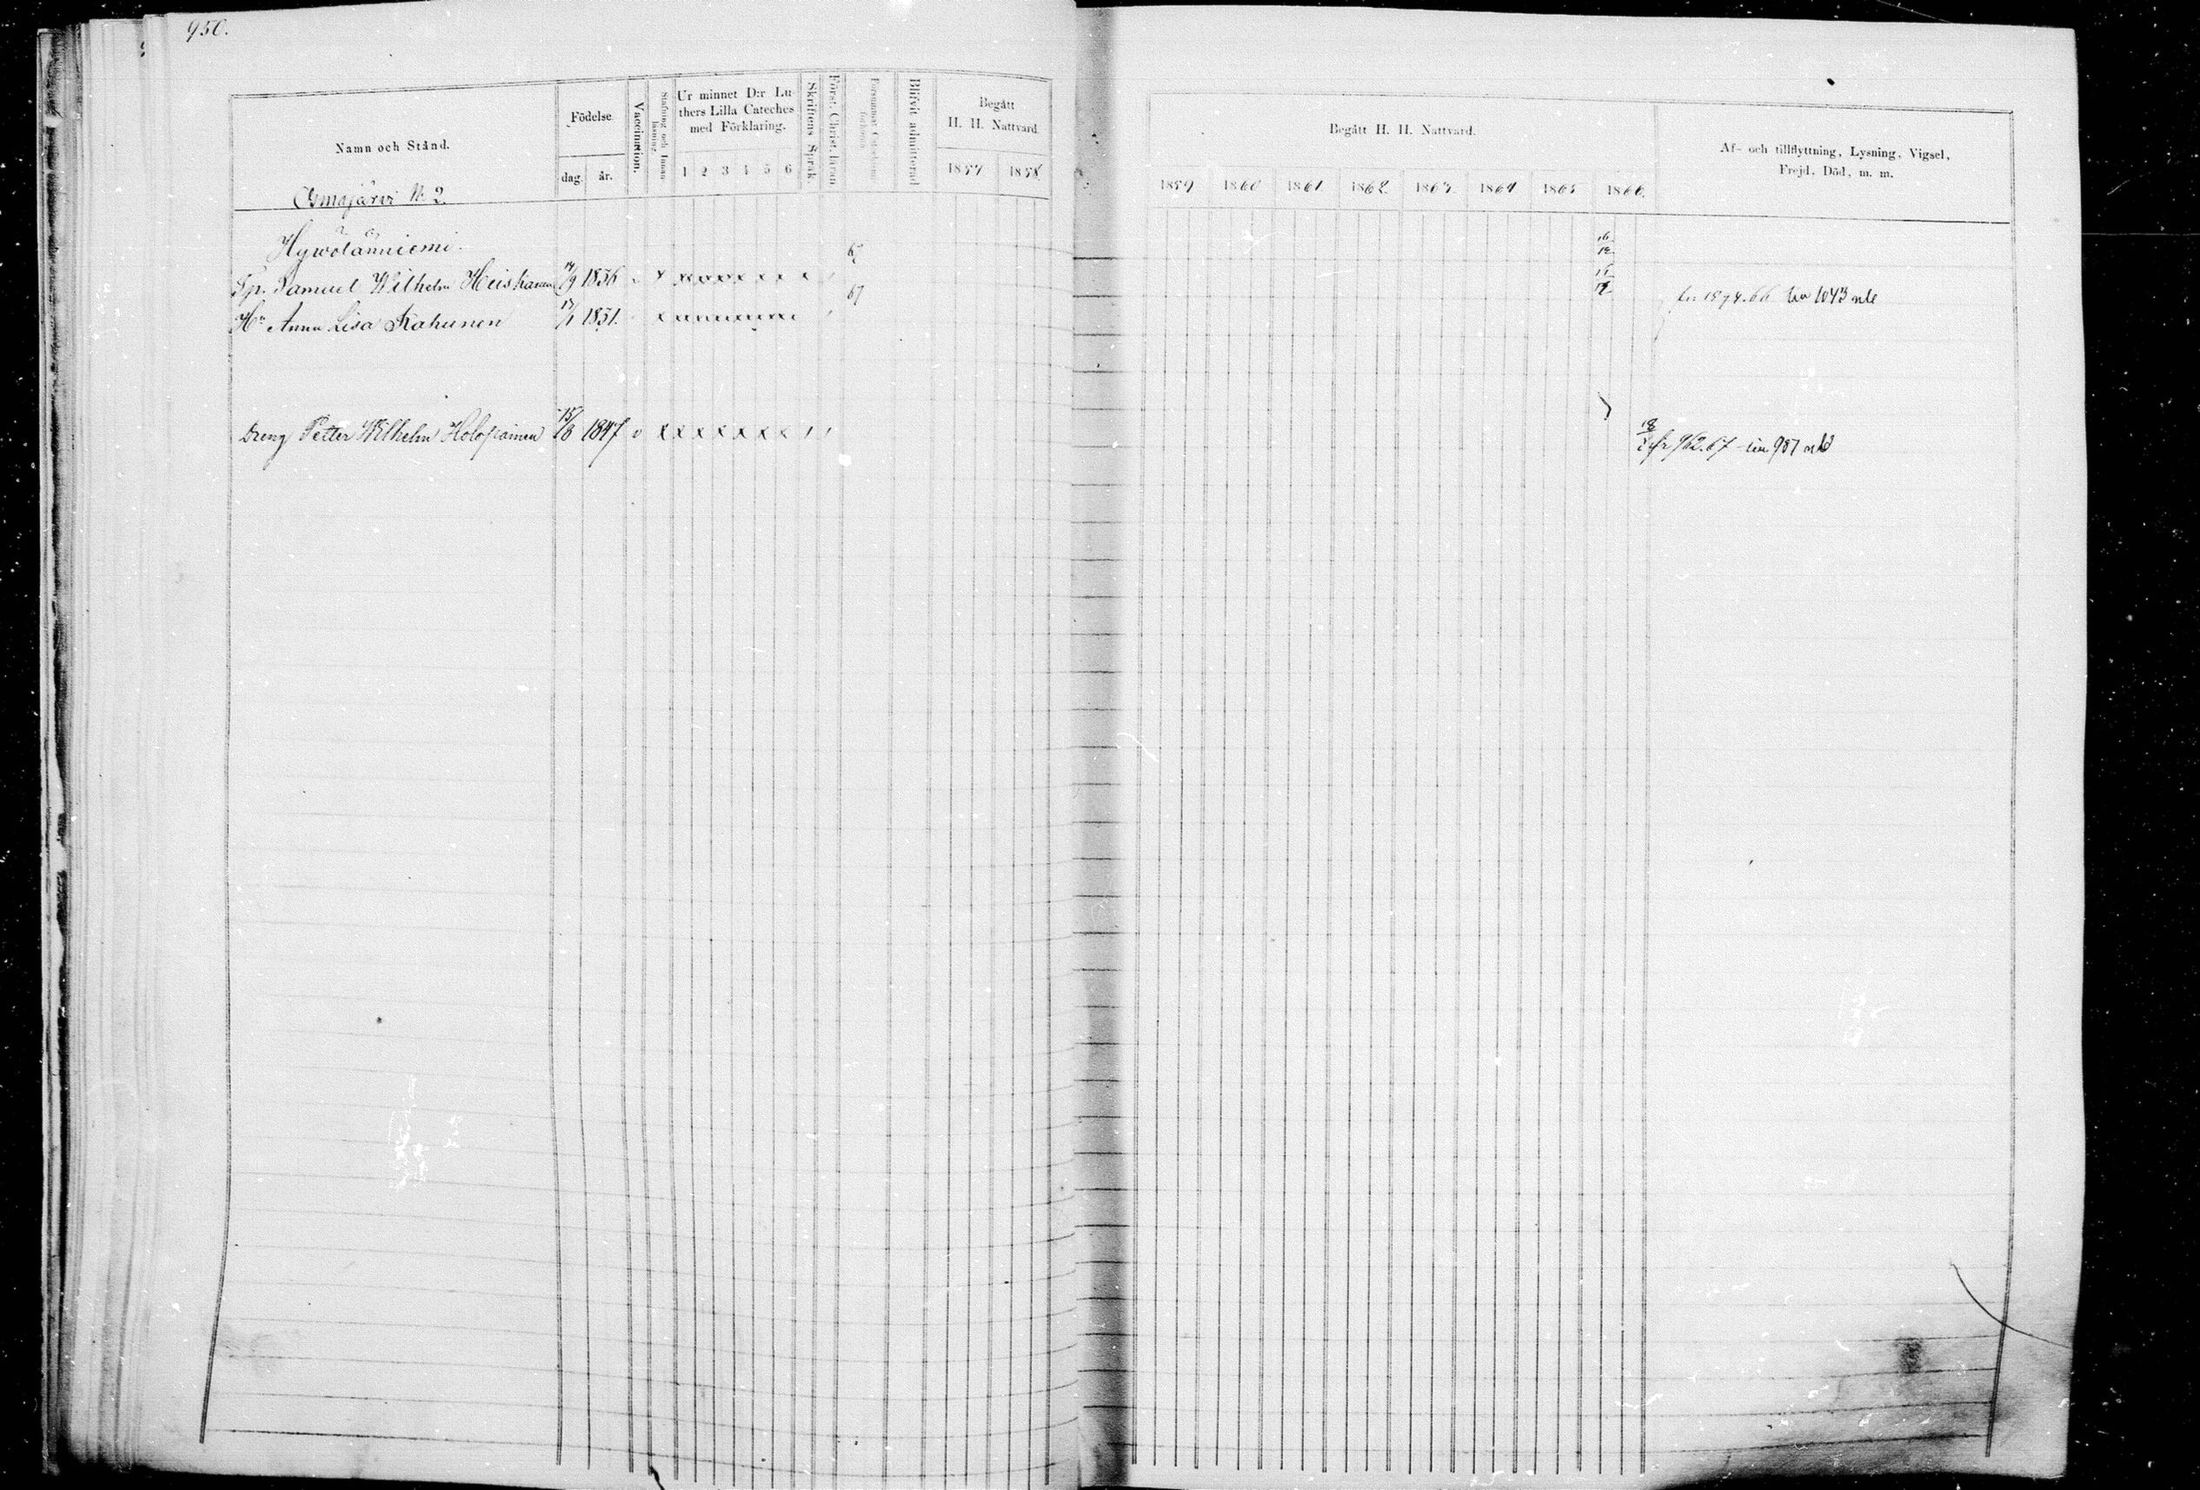 950.
Namn och Stånd.
Födelse.
dag. år.
Vaccination.
Stafning och Innanläsning
Ur minnet D:r Lu-
thers Lilla Cateches
med Förklaring.
1 2 3 4 5 6
Skriftens Språk.
Först. Christ. läran
Blifvit admitterad
Begått
H. H. Nattvard.
1857 1858
Osmajärvi No 2.
Hywölänniemi.
Sp. Samuel Wilhelm Heiskanen 14/9 1836
Hu Anna Lisa Kahunen 17/1 1831.
67
Dreng Petter Wilhelm Holopainen 15/8 1847
Begått H. H. Nattvard.
1859 1860 1861 1862 1863 1864 1865 1866.
Af- och tillflyttning, Lysning, Vigsel,
Frejd, Död, m. m.
1043
fr 962.67 987